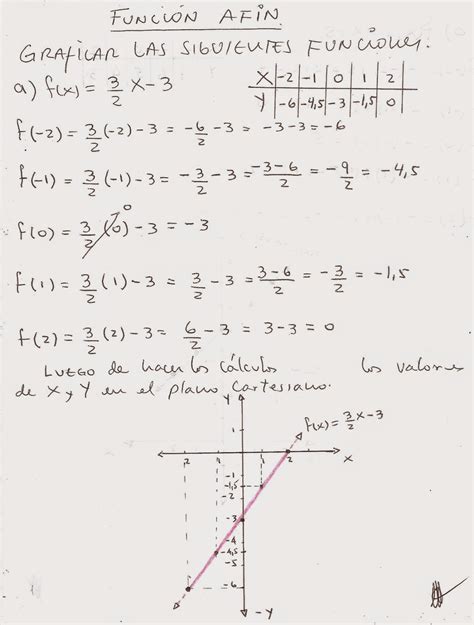 FUNCIÓN AFIN.
GRAFICAR LAS SIGUIENTES FUNCIONES.
a) f(x) = 3/2 x - 3
X | -2 | -1 | 0 | 1 | 2
Y | -6 | -4,5 | -3 | -1,5 | 0
f(-2) = 3/2 (-2) - 3 = -6/2 - 3 = -3 - 3 = -6
f(-1) = 3/2 (-1) - 3 = -3/2 - 3 = -3-6/2 = -9/2 = -4,5
f(0) = 3/2 (0) 0 - 3 = -3
f(1) = 3/2 (1) - 3 = 3/2 - 3 = 3-6/2 = -3/2 = -1,5
f(2) = 3/2 (2) - 3 = 6/2 - 3 = 3 - 3 = 0
LUEGO de hacer los cálculos los valores
de X y Y en el plano cartesiano.
Y
f(x) = 3/2 x - 3
1
2 1 1 2 X
-1
-1,5
-2
-3
-4
-4,5
-5
-6
-Y